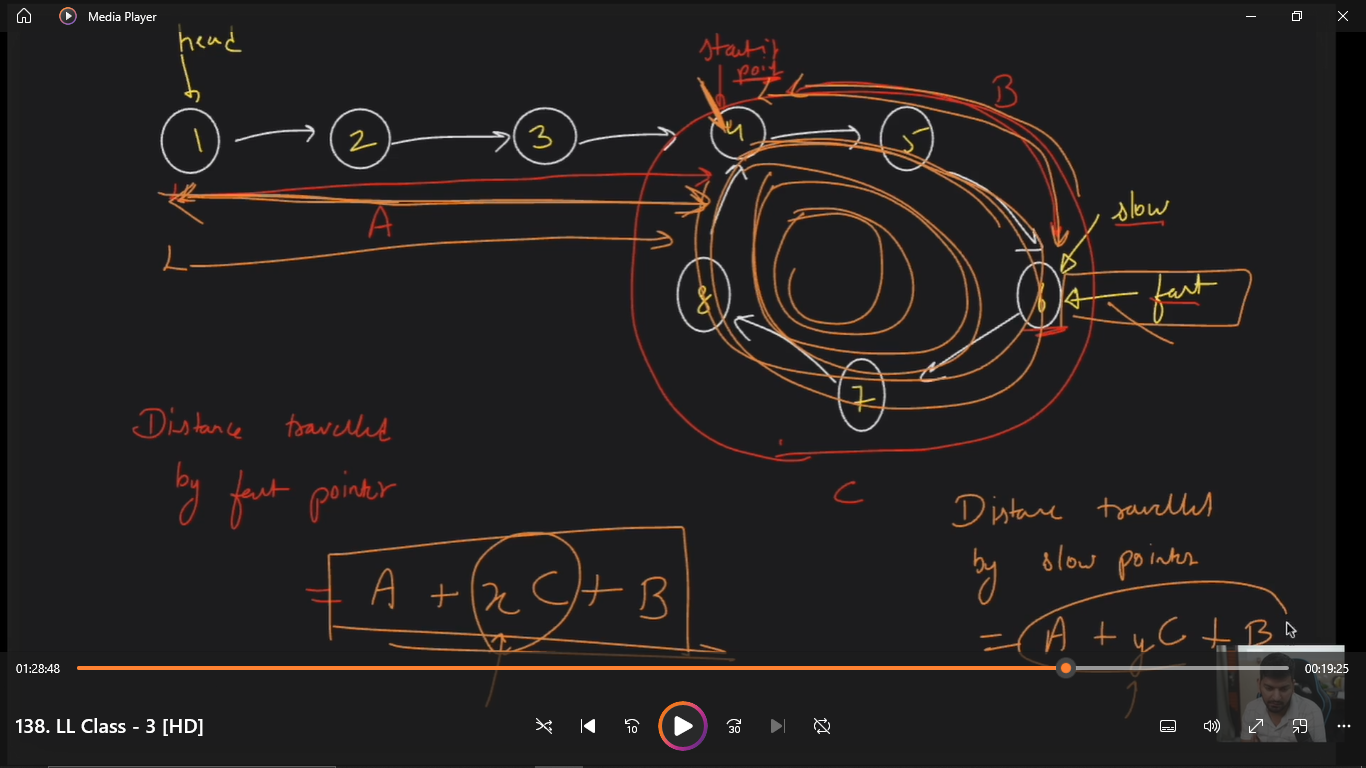 Media Player
head
starting
point
B
1
2
3
4
5
A
slow
fast
8
6
7
Distance travelled
by fast pointer
C
= A + xC + B
Distance travelled
by slow pointer
= A + yC + B
01:28:48
00:19:25
138. LL Class - 3 [HD]
10
30